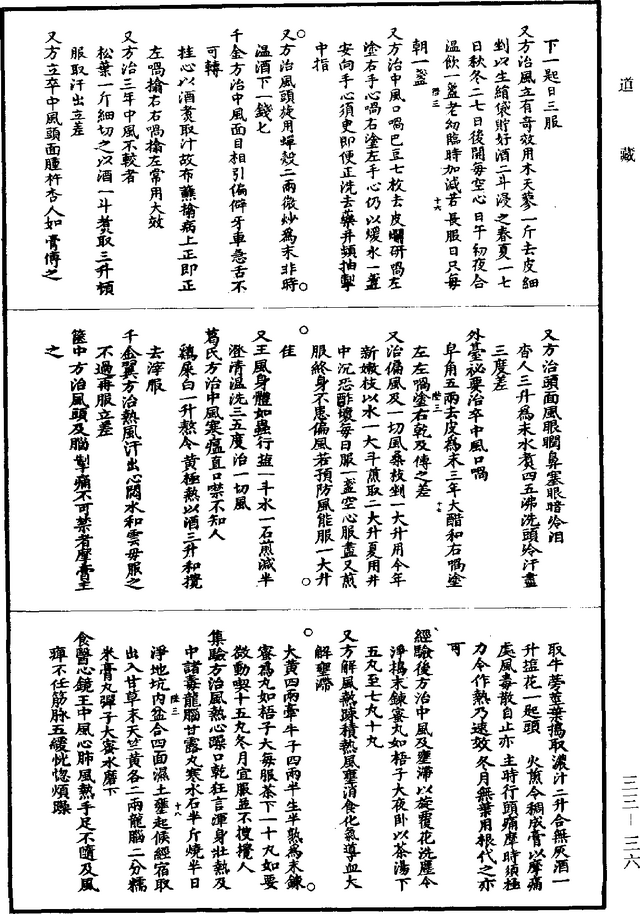 道藏
下一起日三服
又方治風立有奇效用木天蓼一斤去皮細
剉以生絹袋貯好酒二斗浸之春夏一七
日秋冬二七日後開每空心日午初夜合
温飲一盞老幼臨時加減若長服日只每
朝一盞
陸三
十六
又方治中風口喎巴豆七枚去皮爛研喎左
塗右手心喎右塗左手心仍以煖水一盞
安向手心須臾即便正洗去藥并頻抽掣
中指
又方治風頭旋用蟬殼二兩微炒為末非時
温酒下一錢匕
千金方治中風面目相引偏僻牙車急舌不
可轉
桂心以酒煑取汁故布蘸搨病上正即正
左喎搨右右喎搨左常用大效
又方治三年中風不較者
松葉一斤細切之以酒一斗煑取三升頓
服取汗出立差
又方立卒中風頭面腫杵杏人如膏傅之
又方治頭面風眼瞤鼻塞眼暗冷泪
杏人三升為末水煑四五沸洗頭冷汗盡
三度差
外臺祕要治卒中風口喎
皁角五兩去皮為末三年大醋和右喎塗
左左喎塗右乾及傅之差
陸三
十七
又治偏風及一切風桑枝剉一大升用今年
新嫩枝以水一大斗煎取二大升夏用井
中沉恐酢壞每日服一盞空心服盡又煎
服終身不患偏風若預防風能服一大升
佳
又王風身體如蟲行鹽一斗水一石煎減半
澄清温洗三五度治一切風
葛氏方治中風寒瘟直口噤不知人
雞屎白一升熬令黄極熱以酒三升和攪
去滓服
千金翼方治熱風汗出心悶水和雲母服之
不過再服立差
篋中方治風頭及腦掣痛不可禁者摩膏主
之
取牛蒡莖葉搗取濃汁二升合無灰酒一
升鹽花一匙頭 火煎令稠成膏以摩痛
處風毒散自止亦主時行頭痛摩時須極
力令作熱乃速效冬月無葉用根代之亦
可
經驗後方治中風及壅滯以旋覆花洗塵令
淨搗末鍊蜜丸如梧子大夜卧以茶湯下
五丸至七丸十丸
又方解風熱踈積熱風壅消食化氣導血大
解壅滯
大黄四兩牽牛子四兩半生半熟為末鍊
蜜為丸如梧子大每服茶下一十丸如要
微動喫十五丸冬月宜服並不搜攪人
集驗方治風熱心躁口乾狂言渾身壯熱及
中諸毒龍腦甘露丸寒水石半斤燒半日
淨地坑內盆合四面濕土壅起候經宿取
陸三
十八
出入甘草末天竺黄各二兩龍腦二分糯
米膏丸彈子大蜜水磨下
食醫心鏡主中風心肺風熱手足不隨及風
痺不任筋脉五緩恍惚煩躁
三三－三六